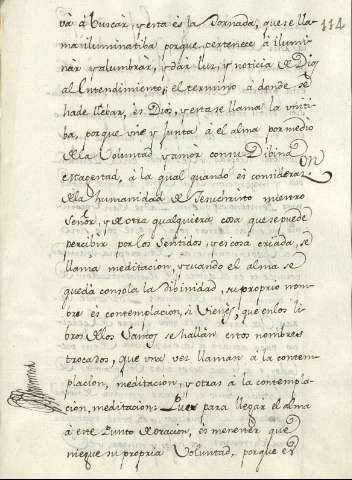 và à buscar, y esta ès la Jornada, que se lla-
114
ma iluminatiba porque pertenece à ilumi-
nàr y alumbràr, y dàr luz, y noticia de Dios
al Entendimiento; el termino à donde se
hade llebar, es Dios, y esta se llama la
porque vne y junta à el alma por medio
de la Voluntad y amòr con su Dibina
Magestad, à la qual quando si consideraz.on
de la humanidad de Jesuchristo nuestro
Señor, y de otra qualquiera cosa que se puede
percibir por los sentidos, y es cosa criada, se
llama meditacion, y quando el alma se
queda consola la Dibinidad, su proprio nom-
bre es contemplacion, si vienes, que enlos li-
bros dlos Santos se hallan estos nombres
trocados, que vna vez llaman à la contem-
placion, meditacion, y otras à la contempla-
cion, meditacion; Pues para llegar el alma
à este Punto de oracion, es menester que
niegue su propria Voluntad, porque es